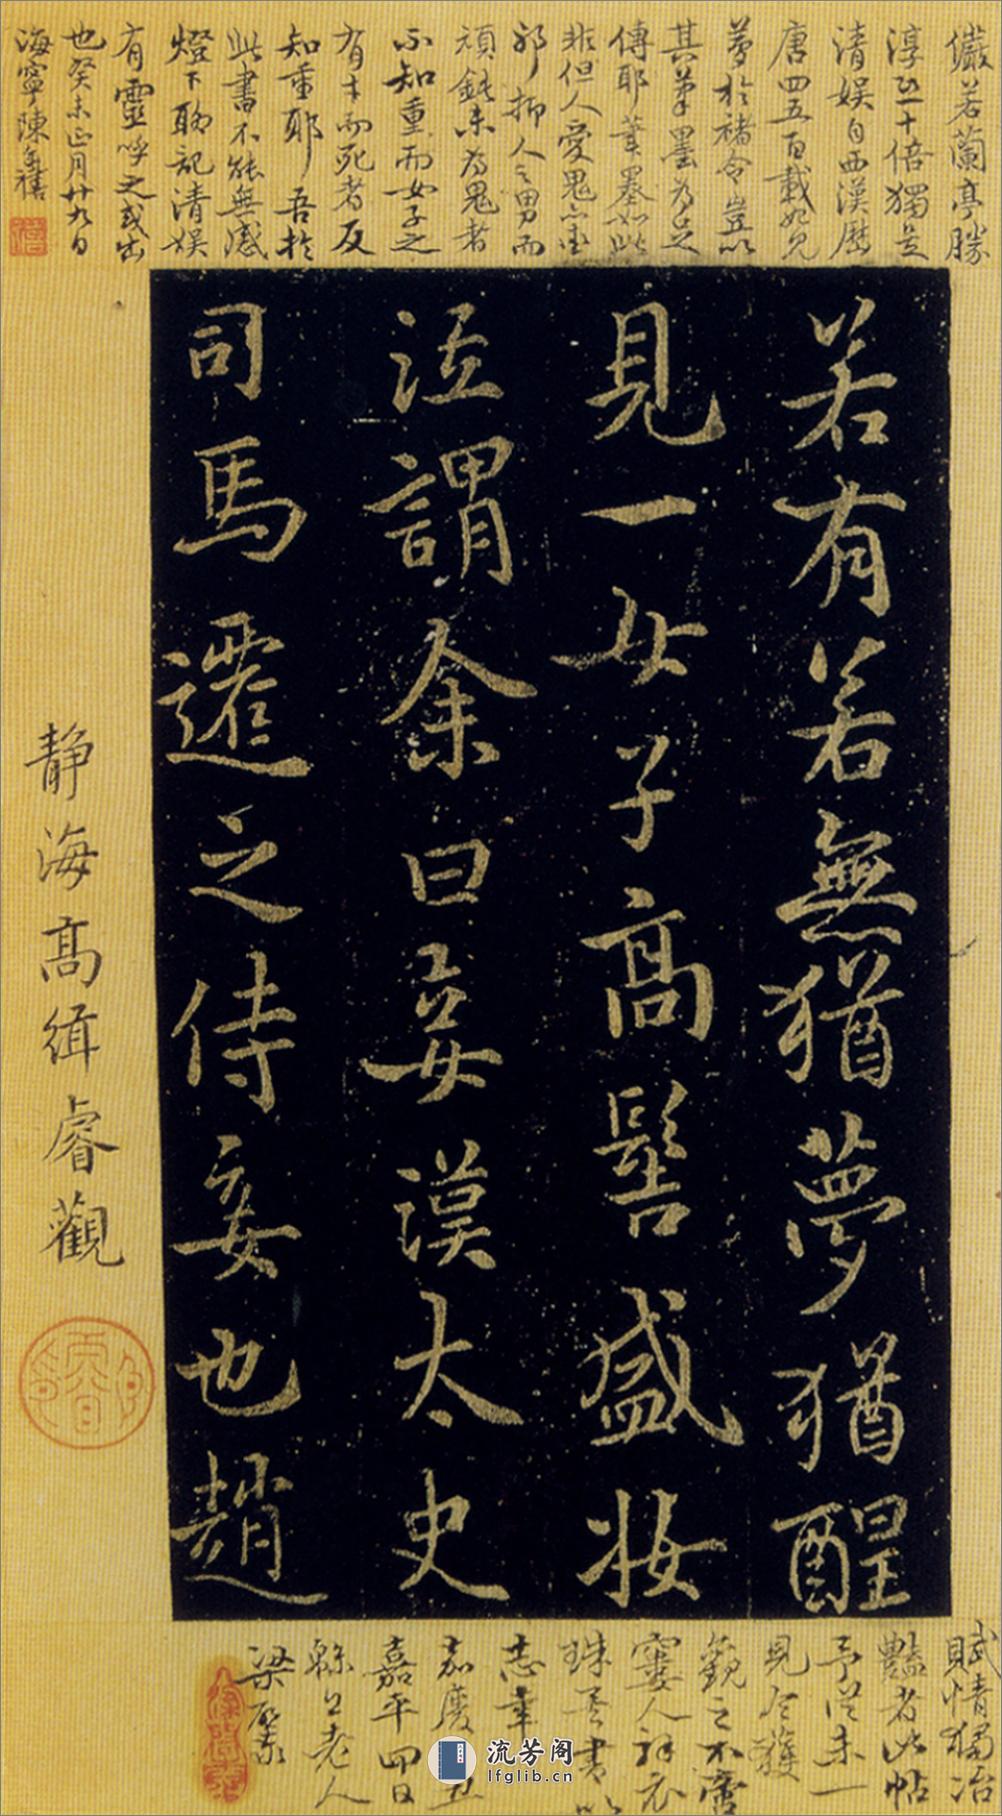 儼若蘭亭勝
淳十倍獨是
清娱自西漢歷
唐四五百載見
夢於褚令豈以
其筆墨為足
傳耶筆墨如此
非但人愛鬼亦
邪抑人之男而
頑鈍未為鬼者
不知重而女子之
有才而死者反
知重耶吾於
此書不能無感
燈下聊記清娱
有靈呼之或出
也癸未正月廿九日
海寧陳奕禧
若有若無猶夢猶醒
見一女子高髻盛妝
泣謂余曰妾漢太史
司馬遷之侍妾也趙
靜海高緝睿觀
賦情獨冶
豔者此帖
予從未一
見今獲
觀之不啻
窶人衣
珠書以
志幸
嘉慶五
嘉平四日
老人
梁
流芳阁
lfglib.cn